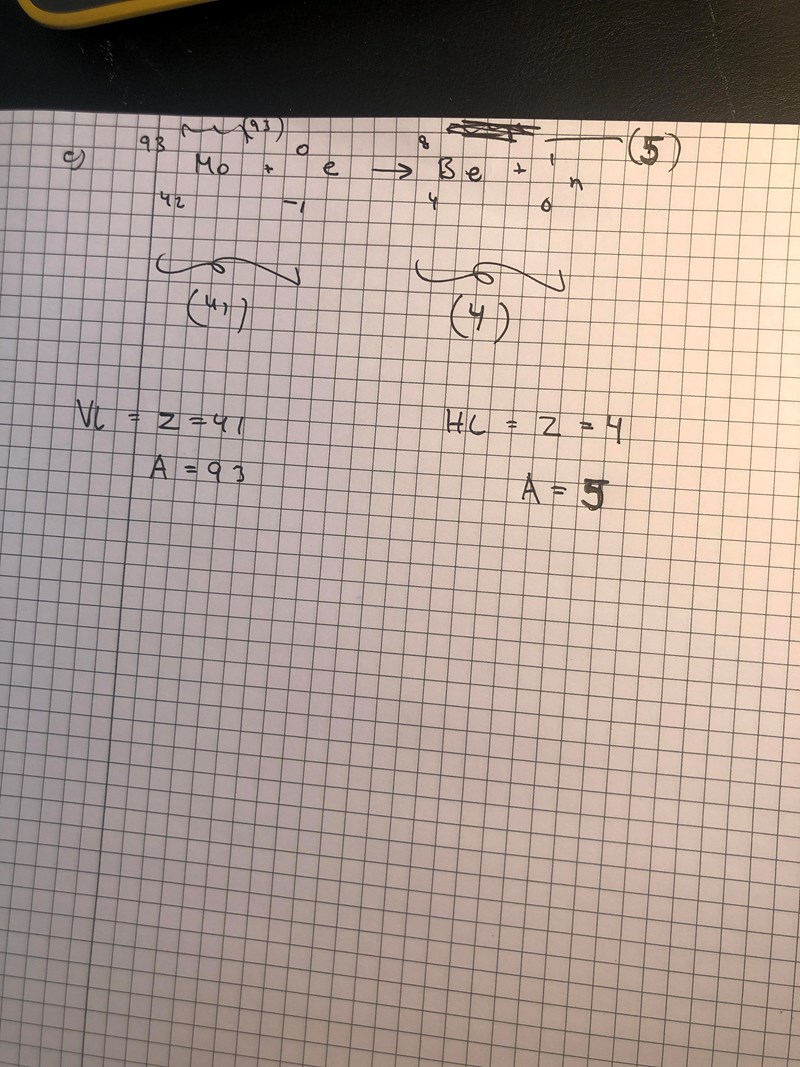 (93) (5)
c) 93 Mo + 0 e → 8 Be + 1 n
42 -1 4 0
(41) (4)
VL = Z = 41 HL = Z = 4
A = 93 A = 5